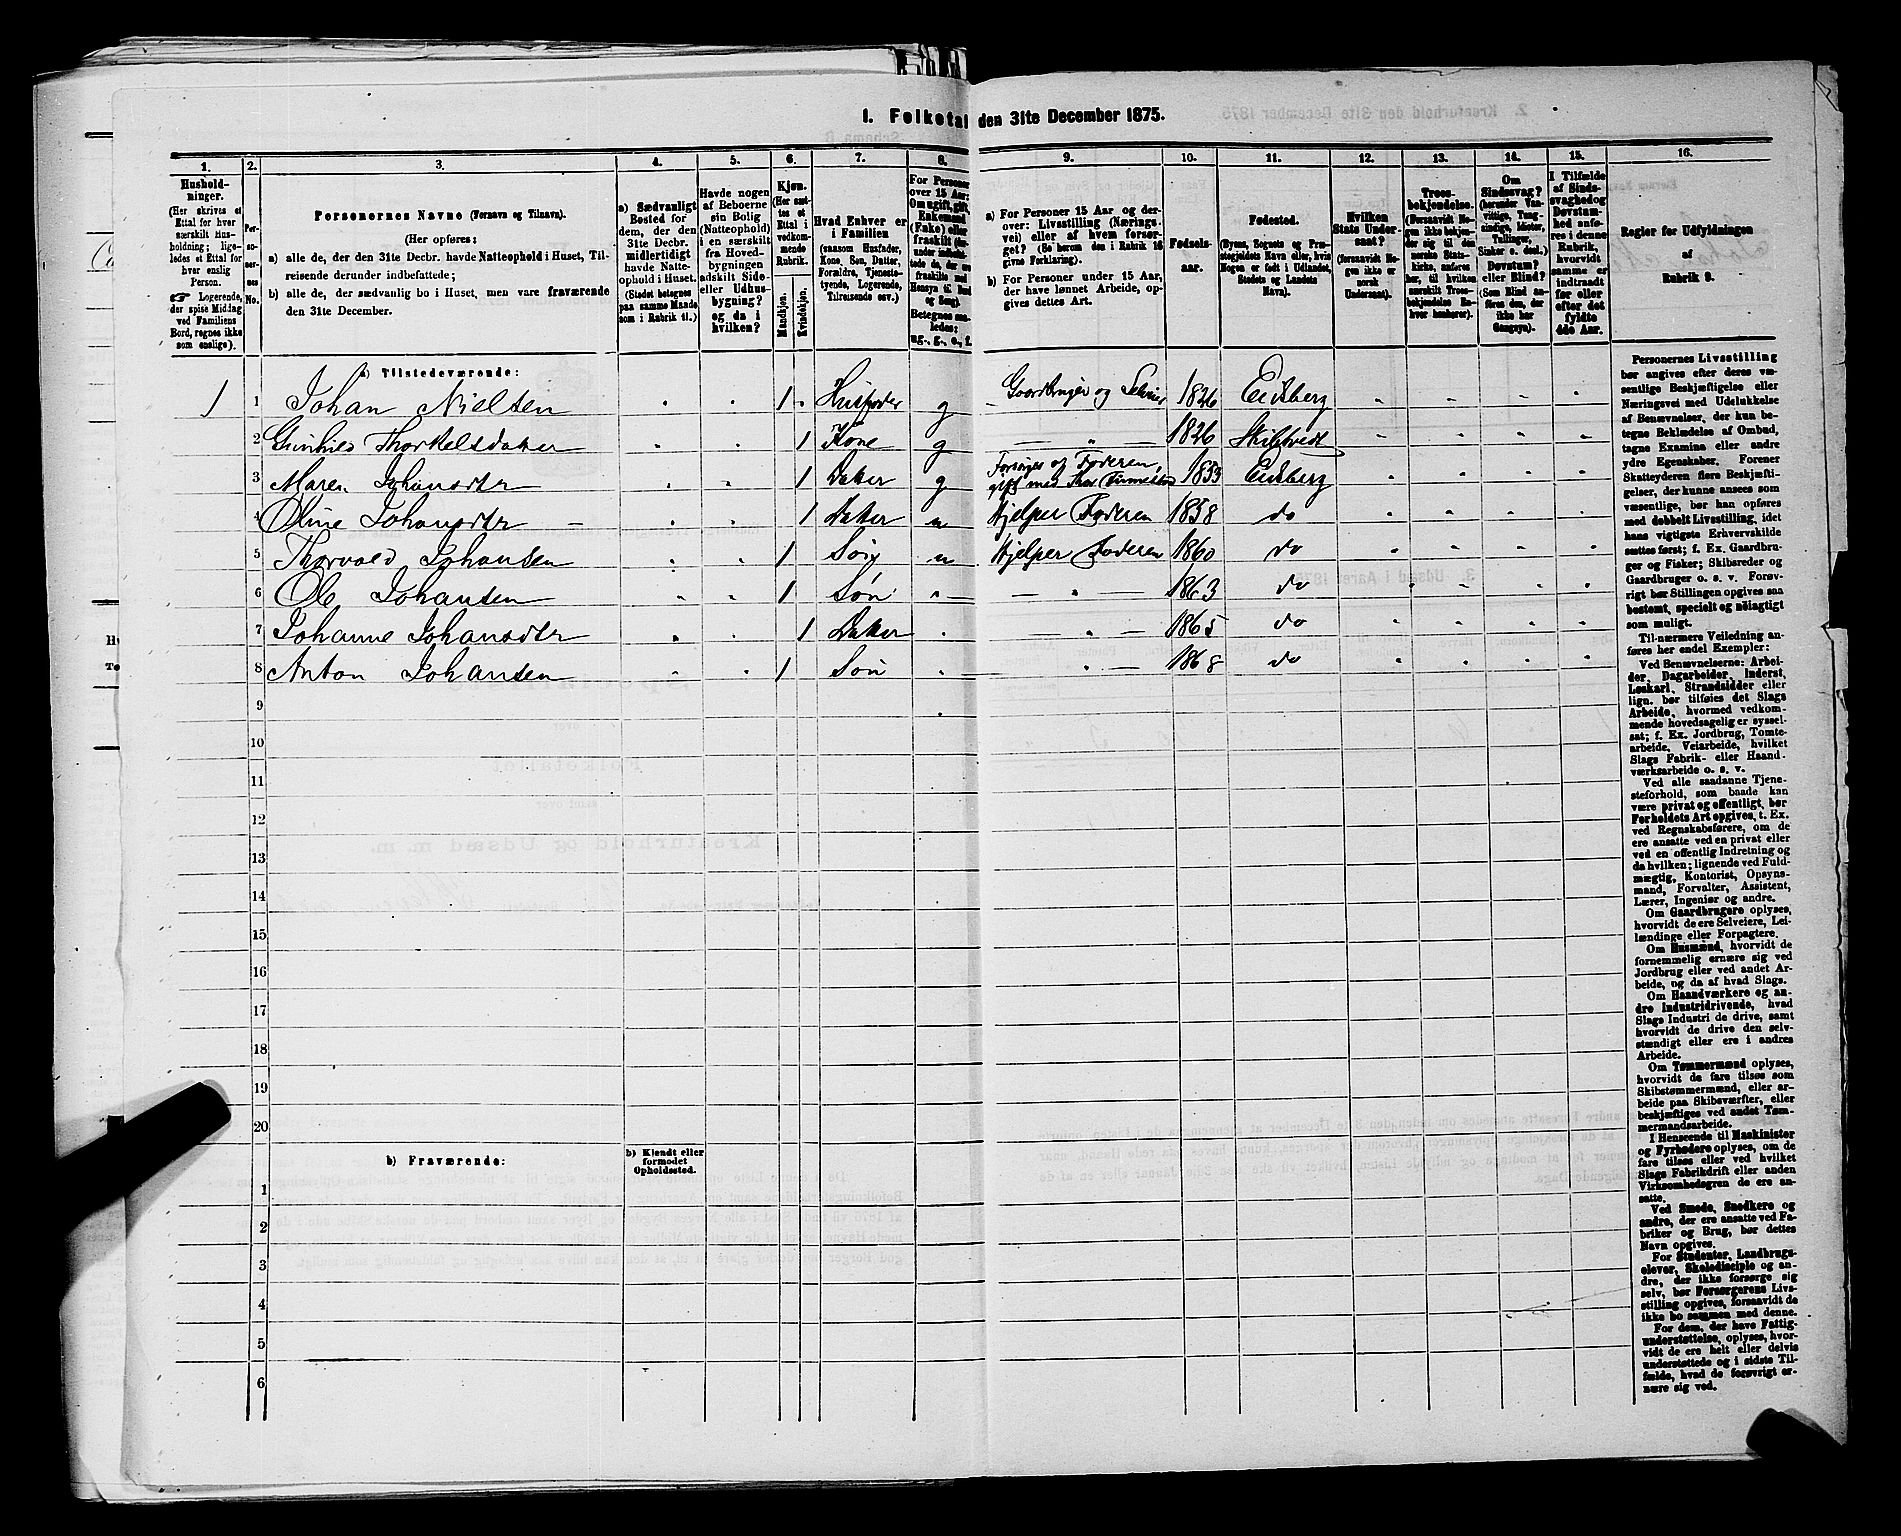 1. Folketal den 31te December 1875.
1. 2. 3. 4. 5. 6. 7. 8. 9. 10. 11. 12. 13. 14. 15. 16.
Hushold-
ninger.
(Her skrives et
Ettal for hver
særskilt Hus-
holdning; lige-
ledes et Ettal for
hver enslig
Person.
☛ Logerende,
der spise Middag
ved Familiens
Bord, regnes ikke
som enslige).
Per-
so-
ner-
nes
No.
Personernes Navne (Fornavn og Tilnavn).
(Her opføres:
a) alle de, der den 31te Decbr. havde Natteophold i Huset, Til-
reisende derunder indbefattede;
b) alle de, der sædvanlig bo i Huset, men vare fraværende
den 31te December.
a) Sædvanligt
Bosted for
dem, der den
31te Decbr.
midlertidigt
havde Natte-
ophold i Huset.
(Stedet betegnes
paa samme Maade
som i Rubrik 11.)
Havde nogen
af Beboerne
sin Bolig
(Natteophold)
i en særskilt
fra Hoved-
bygningen
adskilt Side-
eller Udhus-
bygning?
og da i
hvilken?
Kjøn.
(Her sæt-
tes et
Ettal i
vedkom-
mende
Rubrik.
Mandkjøn.
Kvindekjøn.
Hvad Enhver er
i Familien
(saasom Husfader,
Kone, Søn, Datter,
Forældre, Tjeneste-
tyende, Logerende,
Tilreisende osv.)
For Personer
over 15 Aar:
Om ugift, gift,
Enkemand
(Enke) eller
fraskilt
Betegnes saa-
ledes:
ug., g., e., f.
a) For Personer 15 Aar og der-
over: Livsstilling (Nærings-
vei) eller af hvem forsør-
get? (Se herom den i Rubrik 16
givne Forklaring).
b) For Personer under 15 Aar,
der have lønnet Arbeide, op-
gives dettes Art.
Fødsels-
aar.
Fødested.
(Byens, Sognets og Præ-
stegjeldets Navn eller, hvis
Nogen er født i Udlandet,
Stedets og Landets
Navn).
Hvilken
Stats Under-
saat?
(forsaavidt No-
gen ikke er
norsk
Undersaat).
Troes-
bekjendelse.
(Forsaavidt No-
gen ikke bekjen-
der sig til den
norske Stats-
kirke, anføres
her, til hvilken
særskilt Troes-
bekjendelse En-
hver henhører).
Om
Sindssvag?
(herunder Van-
vittige, Tung-
sindige, Idioter,
Tullinger,
Sinker o. desl.)
Døvstum?
eller Blind?
(Som Blind an-
føres den, der
ikke har
Gangsyn).
I Tilfælde
af Sinds-
svaghed og
Døvstum-
hed anfø-
res i denne
Rubrik,
hvorvidt
samme er
indtraadt
før eller
efter det
fyldte
4de Aar.
Regler for Udfyldningen
af
Rubrik 9.
a) Tilstedeværende:
1 1 Johan Nielsen 1 Husfader g Gaardbruger og Selveier 1826 Eidsberg
2 Gunhild Thorkelsdatter 1 Kone g — " — 1826 Skibtvedt
3 Maren Johansdtr 1 Datter g Forsørges af Faderen, gift med 1853 Eidsberg
4 Oline Johansdtr 1 Datter u Hjelper Faderen 1858 do
5 Thorvald Johansen 1 Søn u Hjelper Faderen 1860 do
6 Ole Johansen 1 Søn — " — 1863 do
7 Johanne Johansdtr 1 Datter — " — 1865 do
8 Anton Johansen 1 Søn — " — 1868 do
9
10
11
12
13
14
15
16
17
18
19
20
b) Fraværende:
b) Kjendt eller
formodet
Opholdssted.
1
2
3
4
5
6
Personernes Livsstilling
bør angives efter deres væ-
sentlige Beskjæftigelse eller
Næringsvei med Udelukkelse
af Benævnelser, der kun be-
tegne Beklædelse af Ombud,
tagne Examina eller andre
ydre Egenskaber. Forener
Skatteyderen flere Beskjæfti-
gelser, der kunne ansees som
væsentlige, bør han opføres
med dobbelt Livsstilling, idet
hans vigtigste Erhvervskilde
sættes først; f. Ex. Gaardbru-
ger og Fisker; Skibsreder og
Gaardbruger o. s. v. Forøv-
rigt bør Stillingen opgives saa
bestemt, specielt og nøiagtigt
som muligt.
Til nærmere Veiledning an-
føres her endel Exempler:
Ved Benævnelserne: Arbei-
der, Dagarbeider, Inderst,
Løskarl, Strandsidder eller
lign. bør tilføies det Slags
Arbeide, hvormed vedkom-
mende hovedsagelig er syssel-
sat; f. Ex. Jordbrug, Tomte-
arbeide, Veiarbeide, hvilket
Slags Fabrik- eller Haand-
værksarbeide o. s. v.
Ved alle saadanne Tjene-
steforhold, som baade kan
være privat og offentligt, bør
Forholdets Art opgives, t. Ex.
ved Regnskabsførere, om de
ere ansatte ved en privat eller
ved en offentlig Indretning og
da hvilken; lignende ved Fuld-
mægtig, Kontorist, Opsyns-
mand, Forvalter, Assistent,
Lærer, Ingeniør og andre.
Om Gaardbrugere oplyses,
hvorvidt de ere Selveiere, Lei-
lændinge eller Forpagtere.
Om Husmænd, hvorvidt de
fornemmelig ernære sig ved
Jordbrug eller ved andet Ar-
beide, og da af hvad Slags.
Om Haandværkere og an-
dre Industridrivende, hvad
Slags Industri de drive, samt
hvorvidt de drive den selv-
stændigt eller ere i andres
Arbeide.
Om Tømmermænd oplyses,
hvorvidt de fare tilsøs som
Skibstømmermænd, eller ar-
beide paa Skibsværfter, eller
beskjæftiges ved andet Tøm-
mermandsarbeide.
I Henseende til Maskinister
og Fyrbødere oplyses, om de
fare tilsøs eller ved hvilket
Slags Fabrikdrift eller anden
Virksomhedsgren de ere an-
satte.
Ved Smede, Snedkere og
andre, der ere ansatte ved Fa-
briker og Brug, bør dettes
Navn opgives.
For Studenter, Landbrugs-
elever, Skoledisciple og an-
dre, der ikke forsørge sig
selv, bør Forsørgerens Livs-
stilling opgives, forsaavidt de
ikke bo sammen med denne.
For dem, der have Fattig-
understøttelse, oplyses, hvor-
vidt de ere helt eller delvis
understøttede og i sidste Til-
fælde, hvad de forøvrigt er-
nære sig ved.